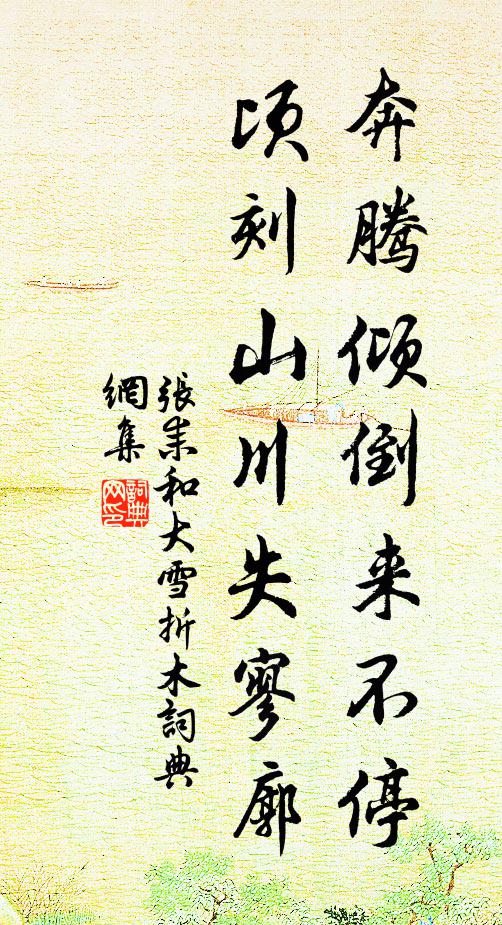 奔腾倾倒来不停
顷刻山川失寥廓
張耒和大雪折木詞典
網集
詞典
网印